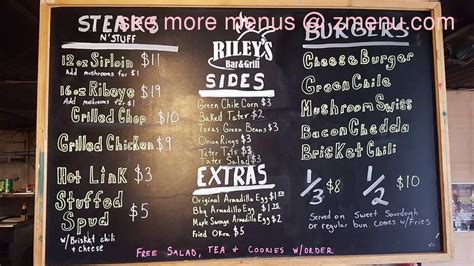 see more menus @ zmenu.com
STEAKS
N' STUFF
12oz Sirloin $11
Add mushrooms for $1
16oz Ribeye $19
Add mushrooms for $1
Grilled Chop $10
Grilled Chicken $9
Hot Link $3
Stuffed
Spud $5
w/Briskat chili
+ cheese
RILEY'S
Bar&Grill
SIDES
Green Chile Corn $3
Baked Tater $2
Texas Green Beans $3
Onion Rings $3
Tater Tots $3
Tater Salad $3
EXTRAS
Original Armadillo Egg $1
Bbq Armadillo Egg $2
Maple Swinay Armadillo Egg $2
Fried Okra $5
FREE SALAD, TEA & COOKIES W/ORDER
BURGERS
Cheese Burger
Green Chile
Mushroom Swiss
Bacon Chedda
Brisket Chili
1/3 $8 1/2 $10
Served on Sweet Sourdough
or regular bun. Comes w/Fries